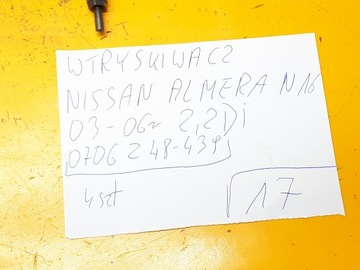 WTRYSKIWACZ
NISSAN ALMERA N16
03-06r 2,2Di
0706Z48-439
4szt
17